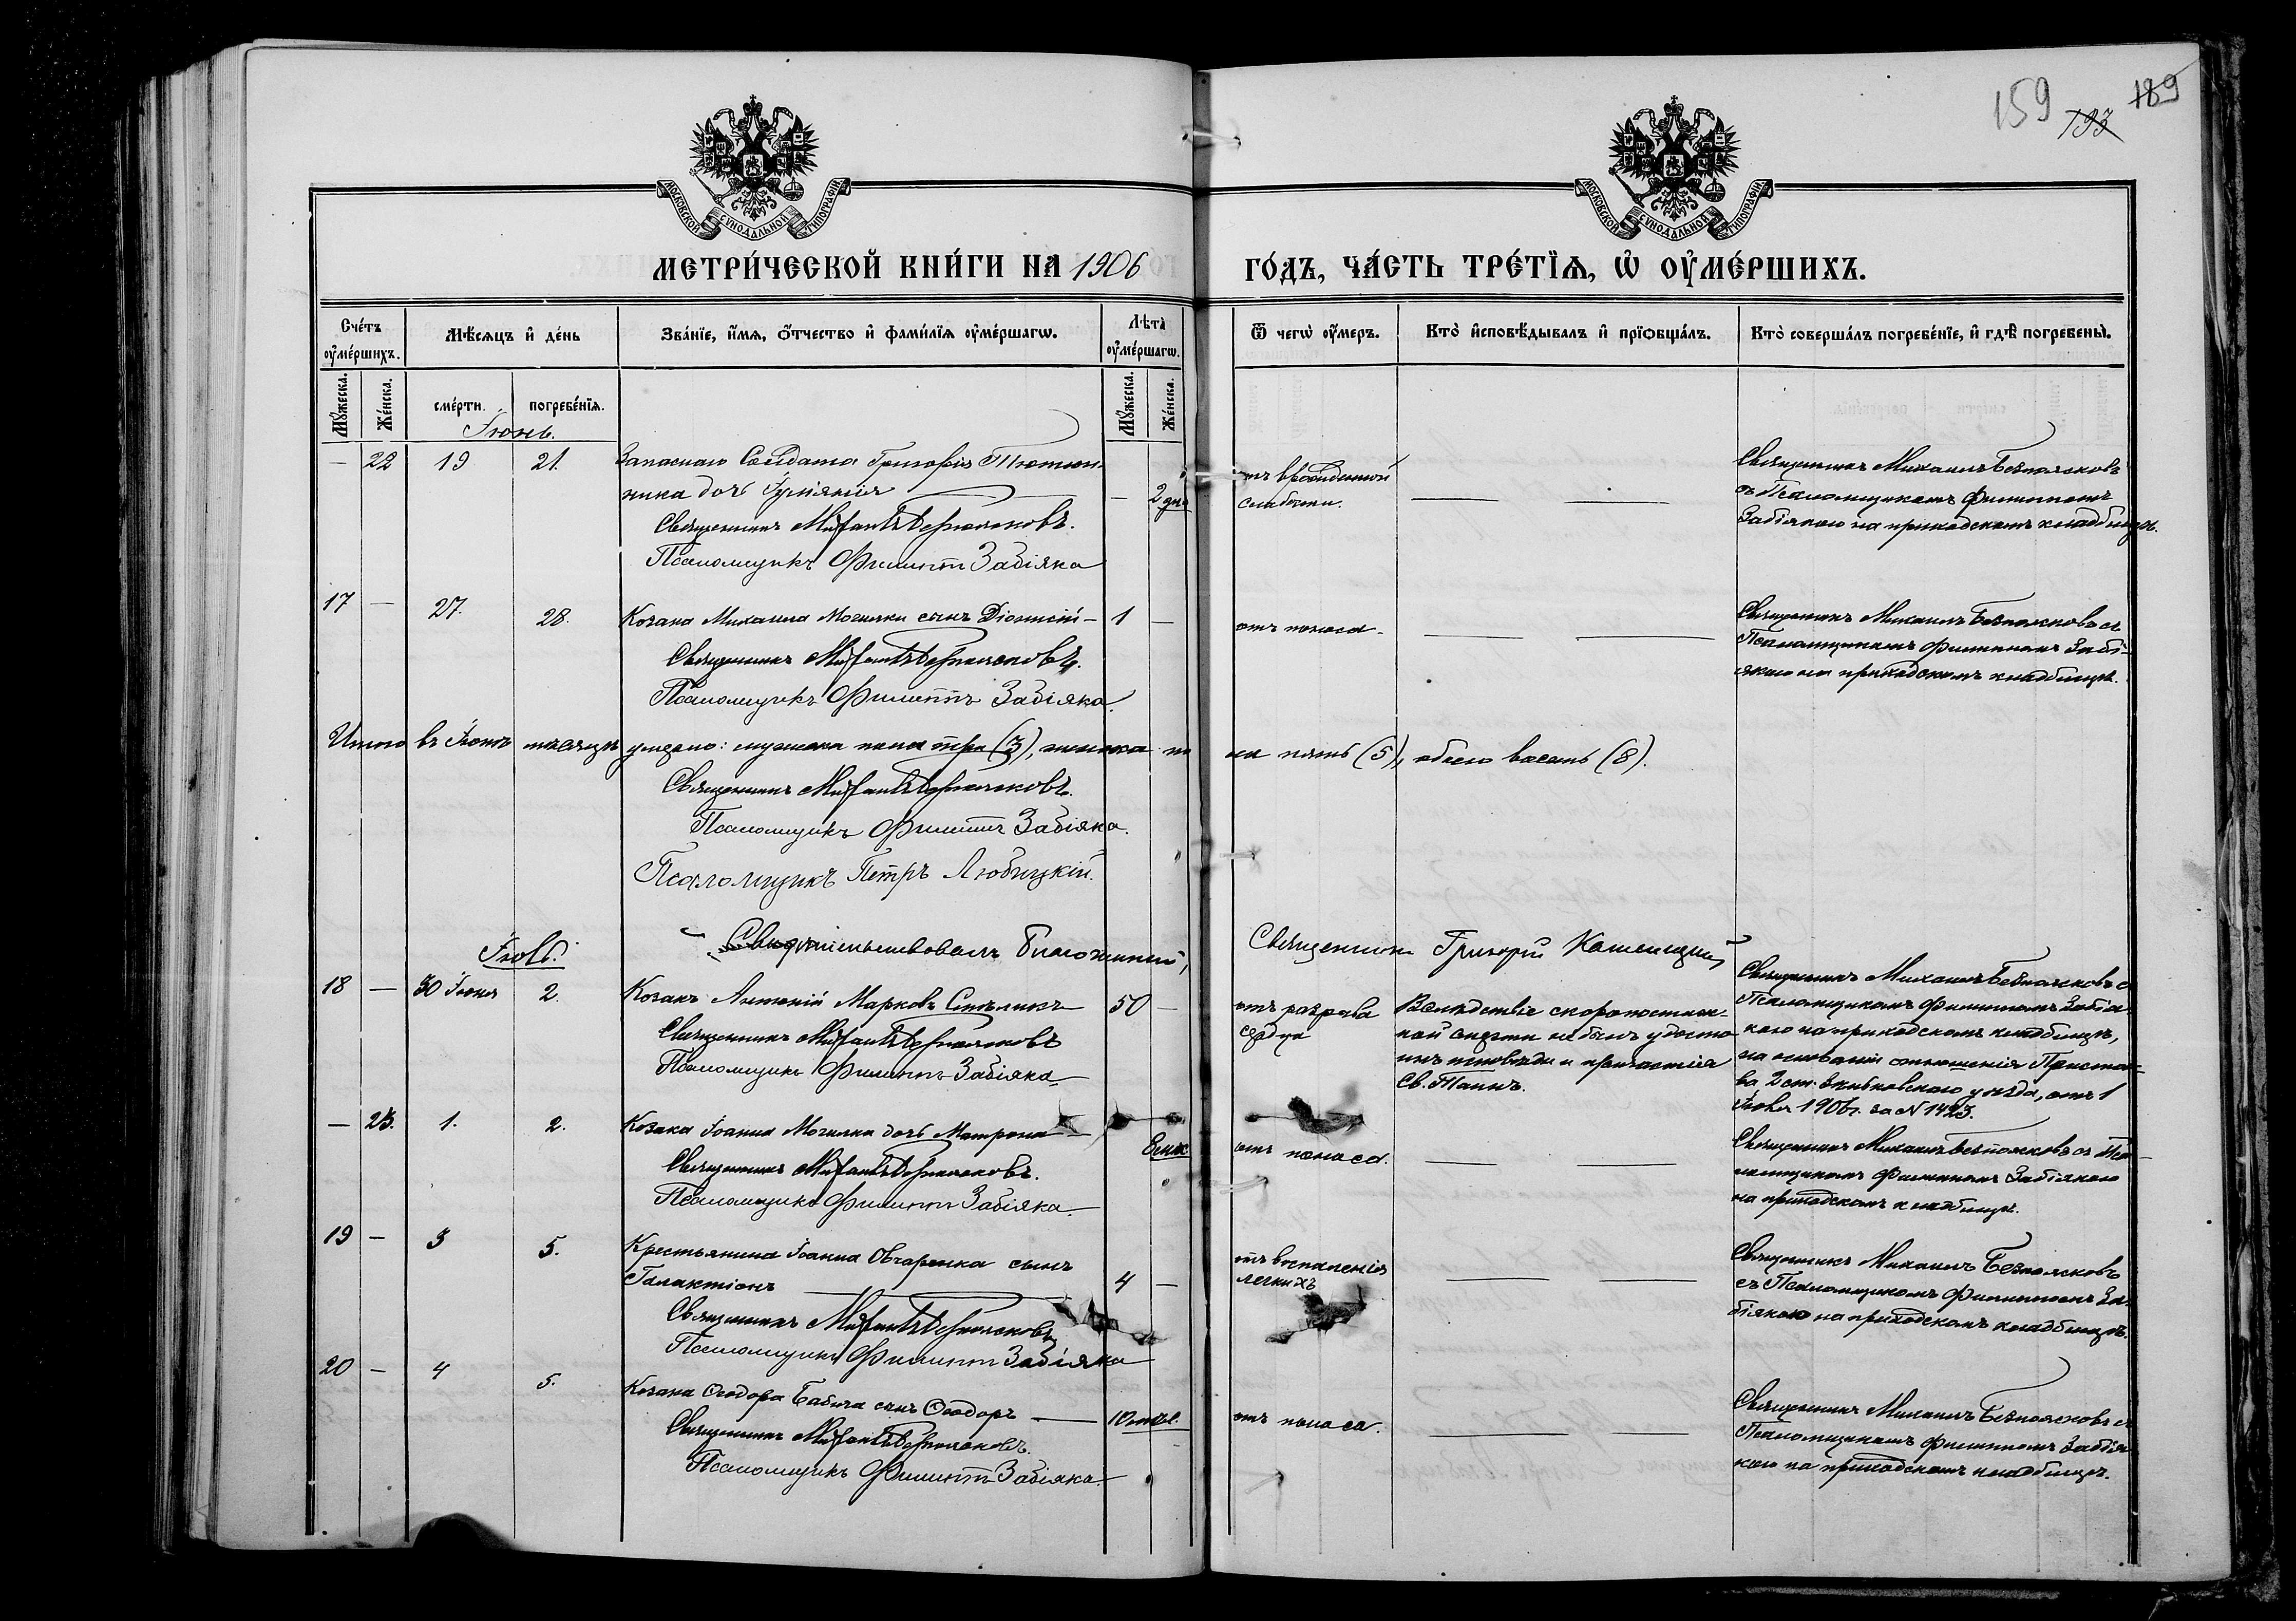 159 193 189
МОСКОВСКОЙ СѴНОДАЛЬНОЙ ТИПОГРАФІИ
МОСКОВСКОЙ СѴНОДАЛЬНОЙ ТИПОГРАФІИ
МЕТРИ́ЧЕСКОЙ КНИ́ГИ НА 1906
ГО́ДЪ, ЧА́СТЬ ТРЕ́ТЇѦ, Ѡ҆ ОУ҆МЕ́РШИХЪ.
Сче́тъ оу҆ме́ршихъ.
Мѣ́сяцъ и҆ де́нь
Зва́нїе, и҆́мя, ѻ҆́тчество и҆ фами́лїя оу҆ме́ршагѡ.
Лѣ́та оу҆ме́ршагѡ.
Ѿ чегѡ̀ оу҆́меръ.
Кто̀ и҆сповѣ́дывалъ и҆ прїѻбща́лъ.
Кто̀ соверша́лъ погребе́нїе, и҆ гдѣ̀ погребены̀.
Мꙋ́жеска.
Же́нска.
сме́рти.
погребе́нїя.
Мꙋ́жеска.
Же́нска.
Іюнь.
— 22 19 21. Запаснаго Солдата Григорія Тютюн-
ника дочь — 2 дня
Священникъ Михаилъ Безпоясковъ.
Псаломщикъ Филиппъ Забіяка
отъ врожденной
слабости.
Священникъ Михаилъ Безпоясковъ
съ Псаломщикомъ Филиппомъ
Забіякою на приходскомъ кладбищѣ.
17 — 27. 28. Козака Михаила Могилки сынъ Діонисій — 1 —
Священникъ Михаилъ Безпоясковъ.
Псаломщикъ Филиппъ Забіяка.
отъ поноса.
Священникъ Михаилъ Безпоясковъ съ
Псаломщикомъ Филиппомъ Забі-
якою на приходскомъ кладбищѣ.
Итого въ Іюнѣ мѣсяцѣ умерло: мужеска пола три (3), женска по
ла пять (5), обоего восемь (8).
Священникъ Михаилъ Безпоясковъ.
Псаломщикъ Филиппъ Забіяка.
Псаломщикъ Петръ Любицкій.
Свидѣтельствовалъ Благочинный,
Священникъ Григорій
Іюль.
18 — 30 Іюня 2. Козакъ Антоній Марковъ 50 —
Священникъ Михаилъ Безпоясковъ
Псаломщикъ Филиппъ Забіяка
отъ разрыва
сердца
Вслѣдствіе скоропостиж-
ной смерти не былъ удосто
енъ исповѣди и причастія
Св. Таинъ.
Священникъ Михаилъ Безпоясковъ съ
Псаломщикомъ Филиппомъ Забія-
кою на приходскомъ кладбищѣ,
на основаніи отношенія Приста-
ва 2 ст. Зеньковскаго уѣзда, отъ 1
Іюля 1906 г. за № 1423.
— 23. 1. 2. Козака Іоанна Могилки дочь Матрона —
Священникъ Михаилъ Безпоясковъ.
Псаломщикъ Филиппъ Забіяка.
отъ поноса.
Священникъ Михаилъ Безпоясковъ съ Пса-
ломщикомъ Филиппомъ Забіякою
на приходскомъ кладбищѣ.
19 — 3 5. Крестьянина Іоанна Овчаренка сынъ
Галактіонъ 4 —
Священникъ Михаилъ Безпоясковъ
Псаломщикъ Филиппъ Забіяка
отъ воспаленія
легкихъ
Священникъ Михаилъ Безпоясковъ
съ Псаломщикомъ Филиппомъ За-
біякою на приходскомъ кладбищѣ.
20 — 4 5. Козака Ѳеодора Бабича сынъ Ѳеодоръ — 10 мѣс.
Священникъ Михаилъ Безпоясковъ.
Псаломщикъ Филиппъ Забіяка.
отъ поноса.
Священникъ Михаилъ Безпоясковъ съ
Псаломщикомъ Филиппомъ Забія-
кою на приходскомъ кладбищѣ.